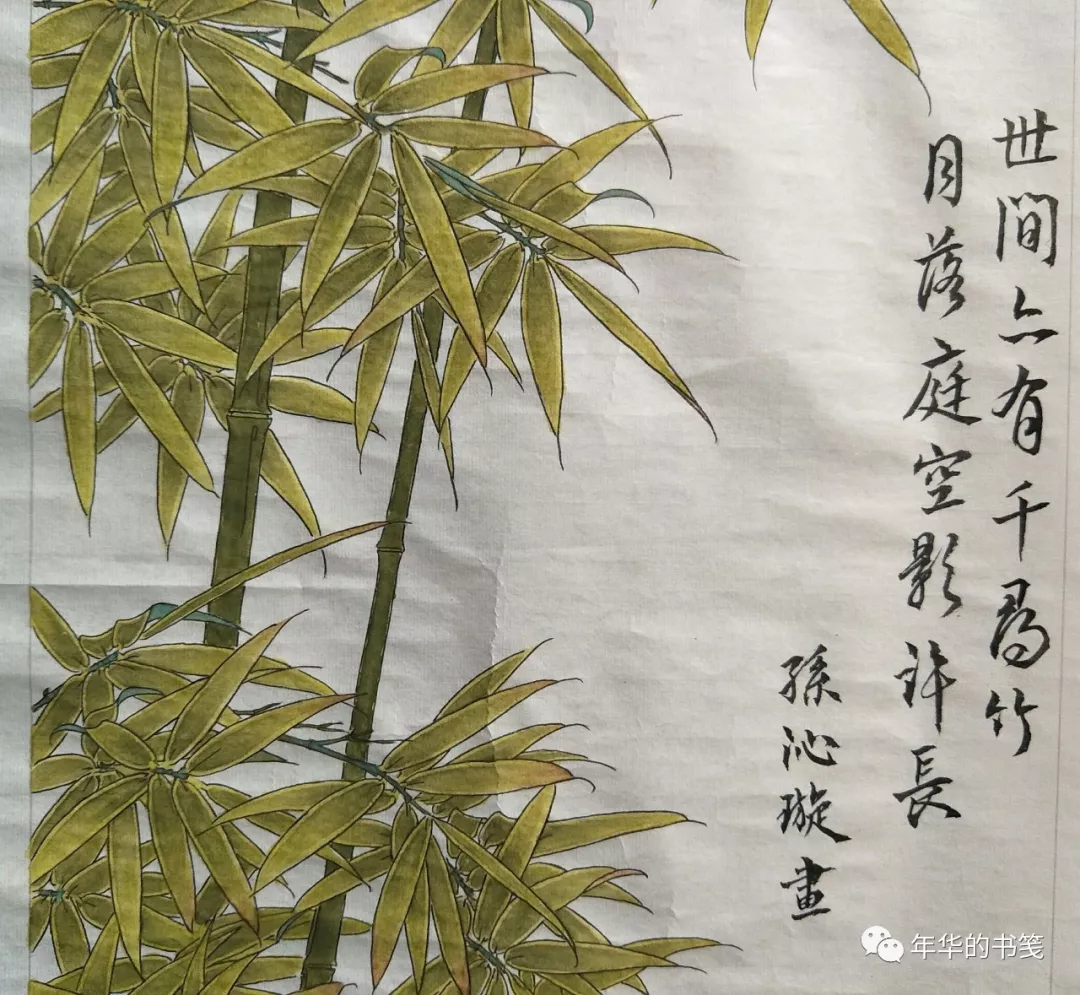 世间亦有千寻竹
月落庭空影許長
孫沁璇畫
年华的书笺